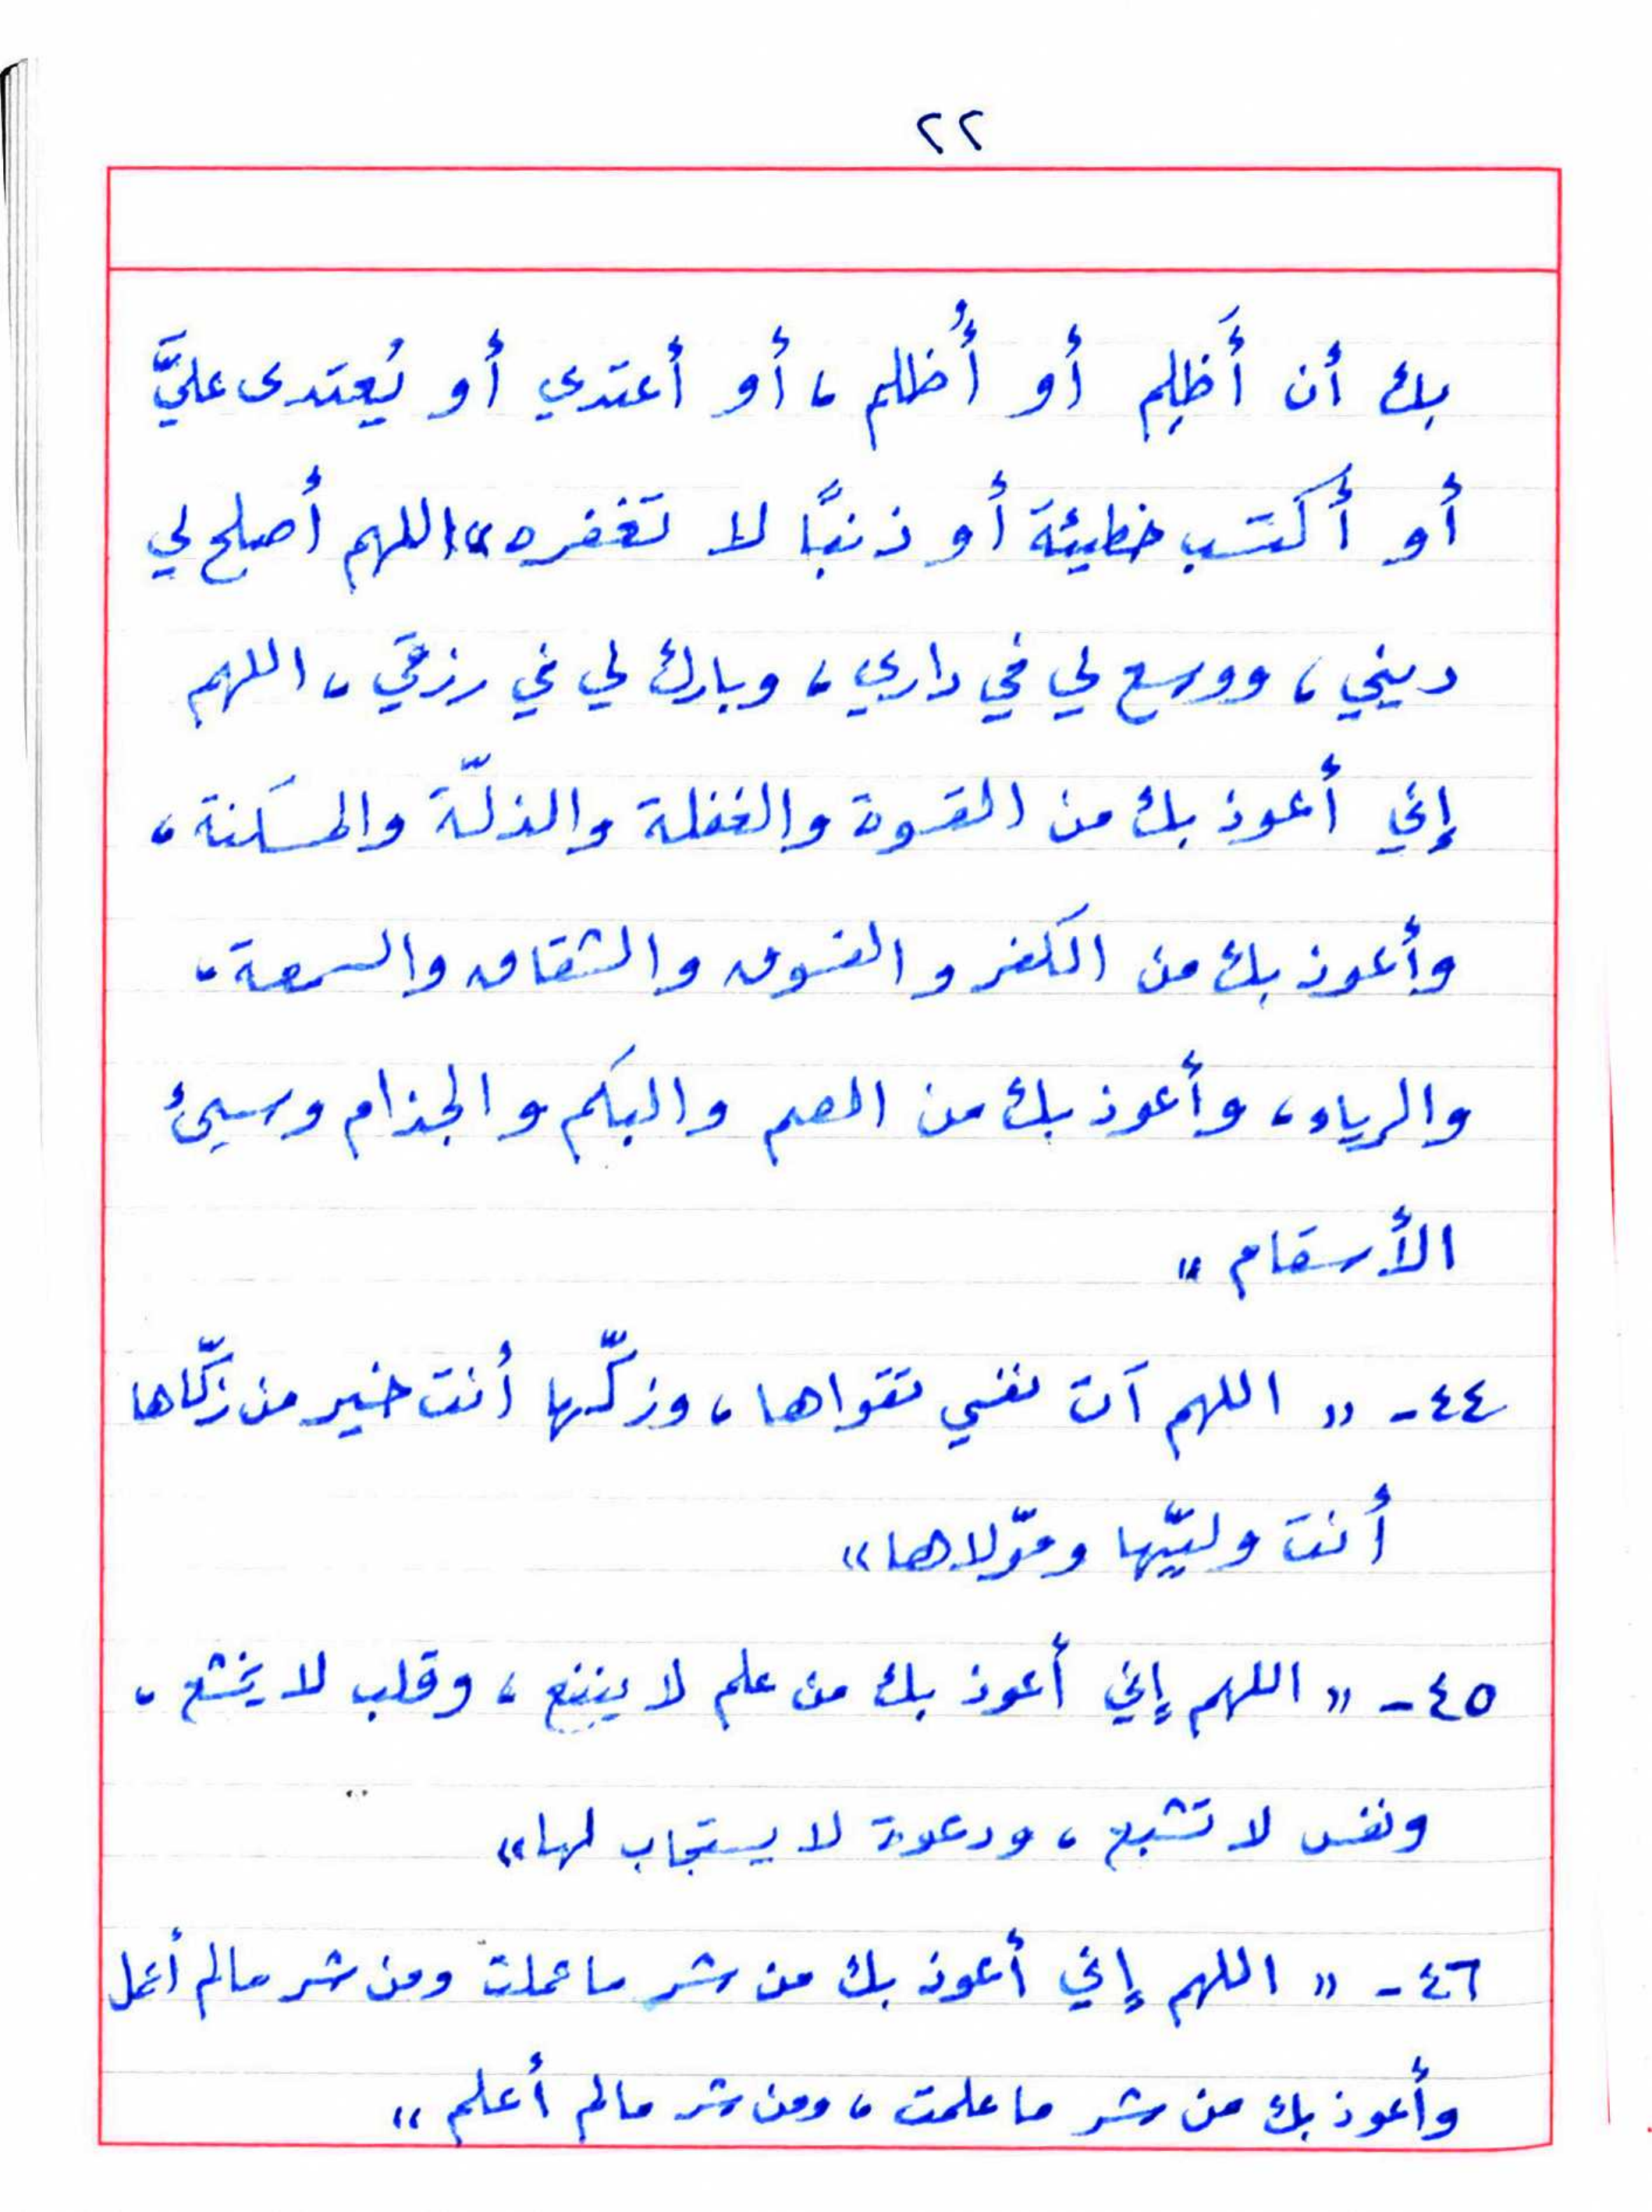 ٢٢
بك أن أَظلِم أو أُظلم، أو أعتدي أو يُعتدى عليَّ
أو أكتسب خطيئة أو ذنبًا لا تغفره»، اللهم أصلح لي
ديني، ووسع لي في داري، وبارك لي في رزقي، اللهم
إني أعوذ بك من القسوة والغفلة والذلّة والمسكنة،
وأعوذ بك من الكفر والفسوق والشقاق والسمعة،
والرياء، وأعوذ بك من الصم والبكم والجذام وسيئ
الأسقام»
٤٤- «اللهم آت نفسي تقواها، وزكّها أنت خير من زكّاها
أنت وليّها ومولاها»
٤٥- «اللهم إني أعوذ بك من علم لا ينفع، وقلب لا يخشع،
ونفس لا تشبع، ودعوة لا يستجاب لها»
٤٦- «اللهم إني أعوذ بك من شر ما عملت ومن شر مالم أعمل
وأعوذ بك من شر ما علمت، ومن شر مالم أعلم»